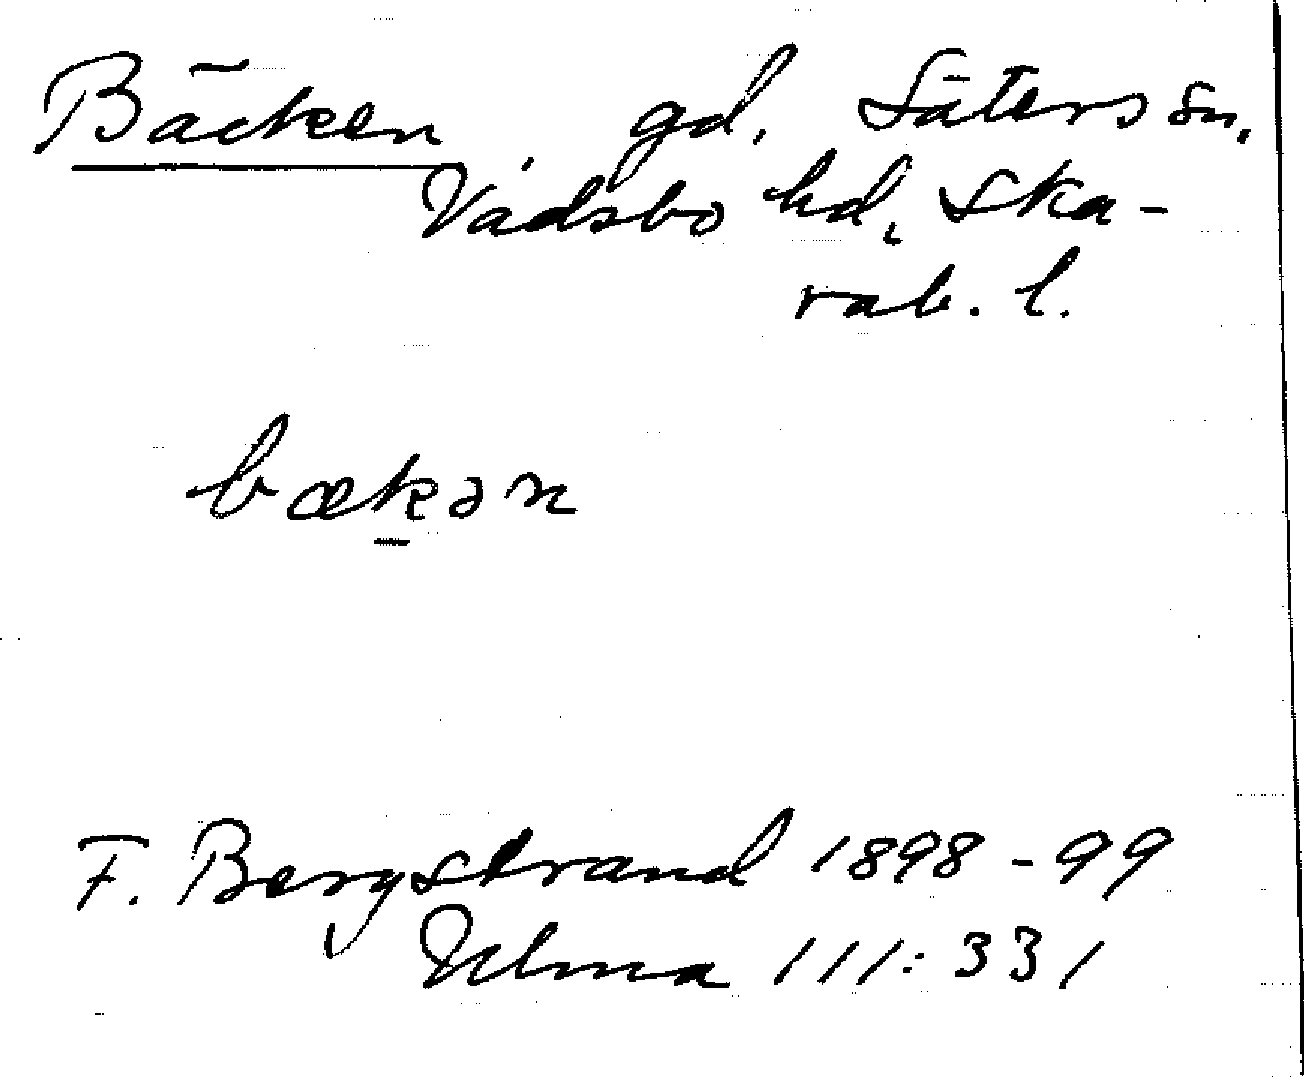 Bäcken gd. Säters sn,
Vadsbo hd, Ska-
rab. l.
bækən
F. Bergstrand 1898-99
Ulma 111:331